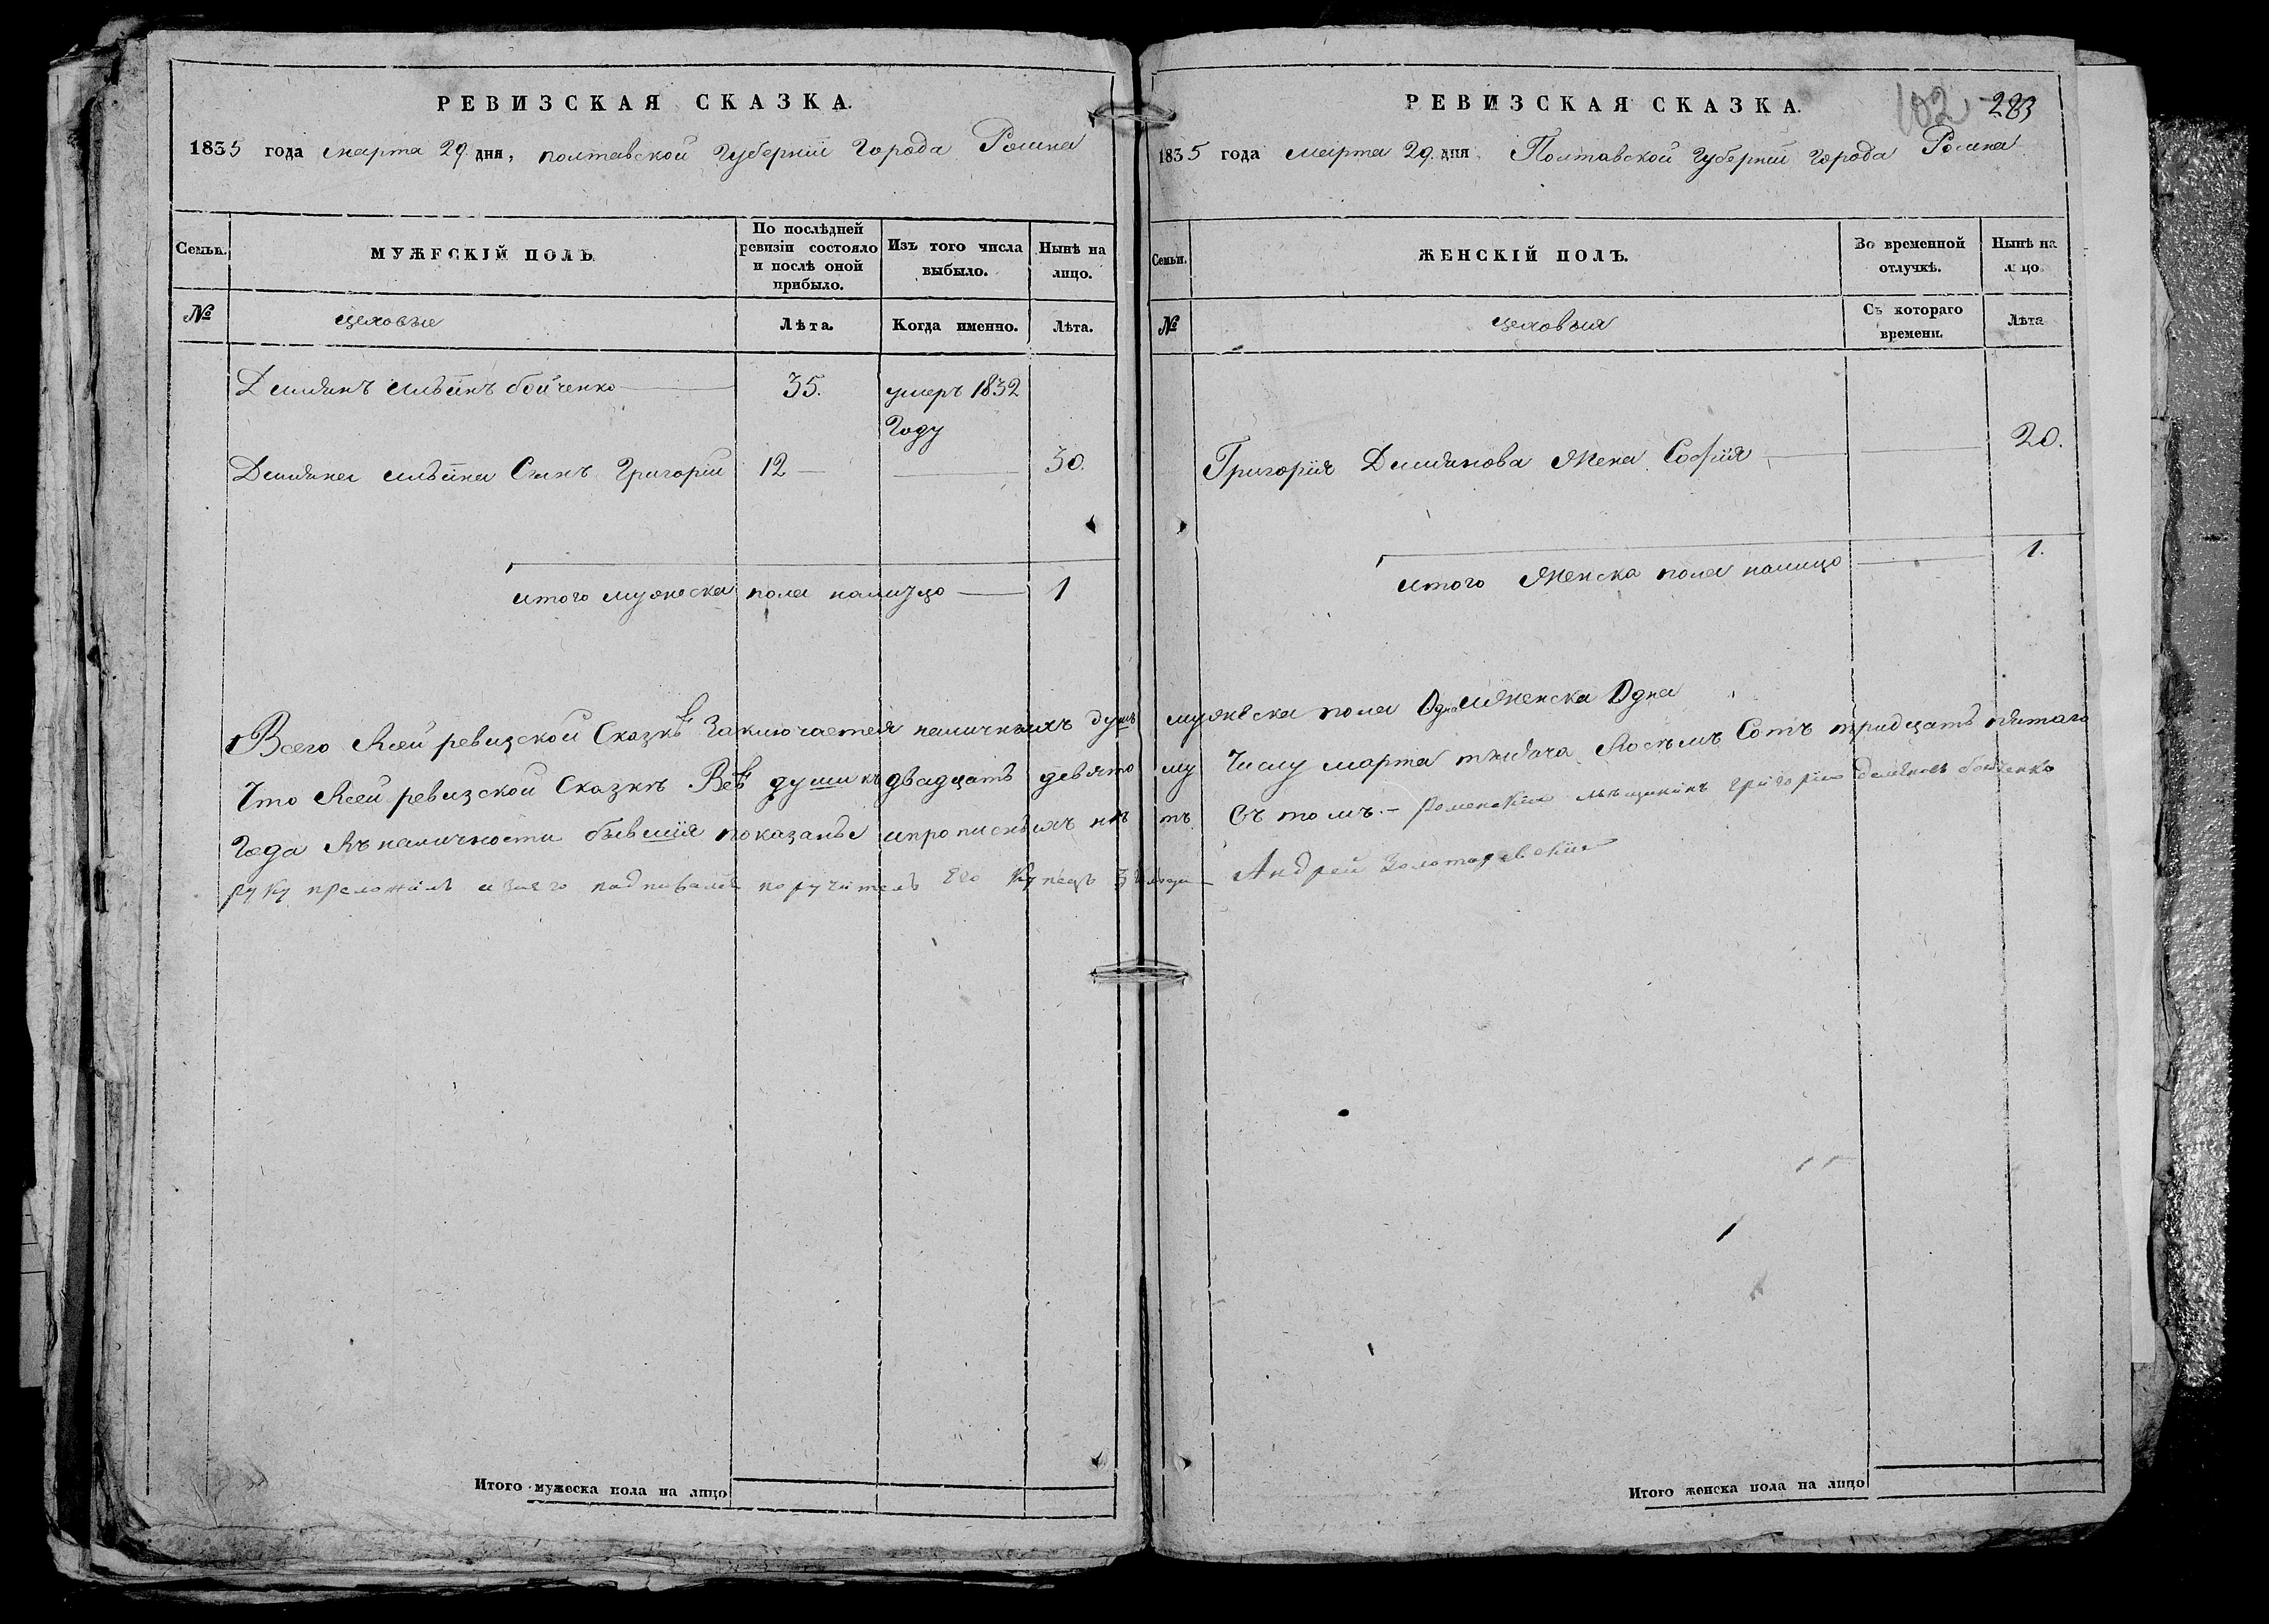 РЕВИЗСКАЯ СКАЗКА.
1835 года марта 29 дня, полтавской Губернїи Города Ромна
Семьи.
МУЖЕСКІЙ ПОЛЪ.
По послѣдней ревизіи состояло и послѣ оной прибыло.
Изъ того числа выбыло.
Нынѣ на лицо.
№
цеховые
Лѣта.
Когда именно.
Лѣта.
Демянъ Ильинъ бойченко 35. умеръ 1832
Году
Демяна ильина Сынъ Григорїй 12 30.
итого мужеска пола налицо 1
Итого мужеска пола на лицо
РЕВИЗСКАЯ СКАЗКА.
102 283
1835 года марта 29 дня. Полтавской Губернїи Города Ромна
Семьи.
ЖЕНСКІЙ ПОЛЪ.
Во временной отлучкѣ.
Нынѣ на лицо.
№
цеховыя
Съ котораго времени.
Лѣта
Григорїя Демянова Жена Софїя 20.
итого Женска пола налицо 1.
Итого женска пола на лицо
Всего Всей ревизской Сказкѣ Заключается наличныхъ душъ мужеска пола Одна Женска Одна
Что Всей ревизской Сказкѣ Всѣ души къ двадцать девятому Числу марта тысяча Восемъ Сотъ тридцать пятаго
Года Въ наличности бывшїя показаны ипрописныхъ нѣтъ. Въ томъ.- Роменскїй мѣщанинъ григорїй демяновъ бойченко
руку приложилъ его купецъ Андрей Золотаревскїй